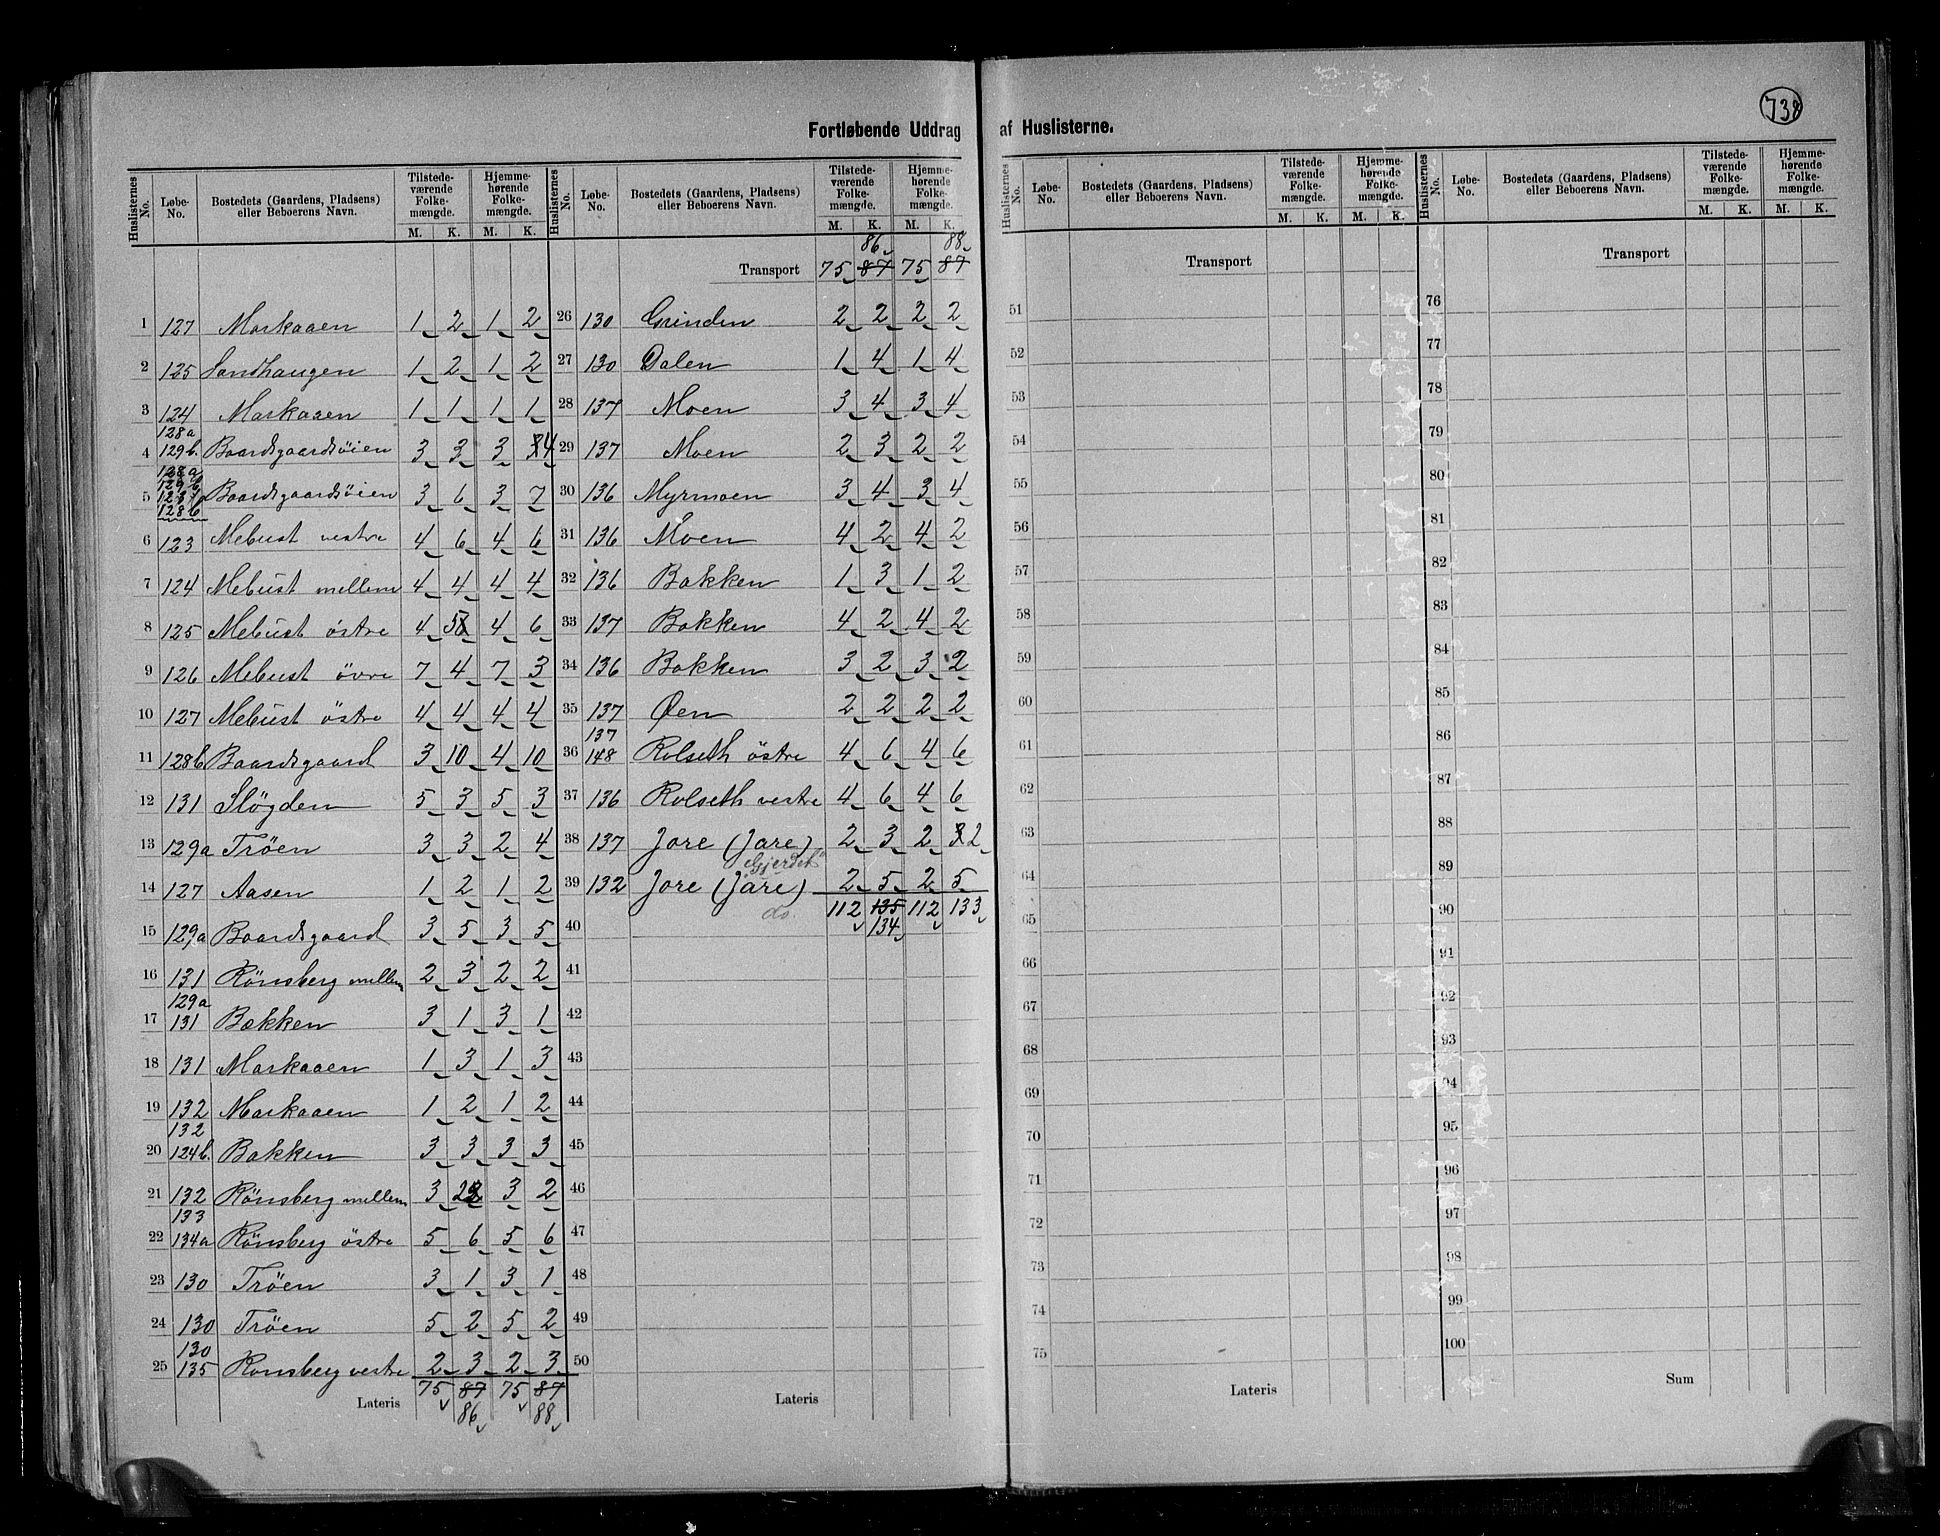 738
Fortløbende Uddrag af Huslisterne.
Huslisternes No. Løbe-No. Bostedets (Gaardens, Pladsens) eller Beboerens Navn. Tilstedeværende Folkemængde. M. K. Hjemmehørende Folkemængde. M. K.
1 127 Markaaen 1 2 1 2
2 125 Sandhaugen 1 2 1 2
3 124 Markaaen 1 1 1 1
4 128a 129b. Baardsgaardsöien 3 3 3 4
5 128a 129b 128b Baardsgaardsöien 3 6 3 7
6 123 Mebust vestre 4 6 4 6
7 124 Mebust mellem 4 4 4 4
8 125 Mebust östre 4 5 4 6
9 126 Mebust övre 7 4 7 3
10 127 Mebust östre 4 4 4 4
11 128b Baardsgaard 3 10 4 10
12 131 Slögden 5 3 5 3
13 129a Tröen 3 3 2 4
14 127 Aasen 1 2 1 2
15 129a Baardsgaard 3 5 3 5
16 131 Rönsberg mellem 2 3 2 2
17 129a 131 Bakken 3 1 3 1
18 131 Markaaen 1 3 1 3
19 132 Markaaen 1 2 1 2
20 132 124b. Bakken 3 3 3 3
21 132 Rönsberg mellem 3 2 3 2
22 133 134a Rönsberg östre 5 6 5 6
23 130 Tröen 3 1 3 1
24 130 Tröen 5 2 5 2
25 130 135 Rönsberg vestre 2 3 2 3
75 87 75 87
Lateris 86 88
Huslisternes No. Løbe-No. Bostedets (Gaardens, Pladsens) eller Beboerens Navn. Tilstedeværende Folkemængde. M. K. Hjemmehørende Folkemængde. M. K.
86 88
Transport 75 87 75 87
26 130 Grinden 2 2 2 2
27 130 Dalen 1 4 1 4
28 137 Moen 3 4 3 4
29 137 Moen 2 3 2 2
30 136 Myrmoen 3 4 3 4
31 136 Moen 4 2 4 2
32 136 Bakken 1 3 1 2
33 137 Bakken 4 2 4 2
34 136 Bakken 3 2 3 2
35 137 Øen 2 2 2 2
36 137 148 Rolseth östre 4 6 4 6
37 136 Rolseth vestre 4 6 4 6
38 137 Jore (Jare) 2 3 2 2
"Gjerdet"
39 132 Jore (Jare) 2 5 2 5
do. 112 135 112 133
40 134
41
42
43
44
45
46
47
48
49
50
Lateris
Huslisternes No. Løbe-No. Bostedets (Gaardens, Pladsens) eller Beboerens Navn. Tilstedeværende Folkemængde. M. K. Hjemmehørende Folkemængde. M. K.
Transport
51
52
53
54
55
56
57
58
59
60
61
62
63
64
65
66
67
68
69
70
71
72
73
74
75
Lateris
Huslisternes No. Løbe-No. Bostedets (Gaardens, Pladsens) eller Beboerens Navn. Tilstedeværende Folkemængde. M. K. Hjemmehørende Folkemængde. M. K.
Transport
76
77
78
79
80
81
82
83
84
85
86
87
88
89
90
91
92
93
94
95
96
97
98
99
100
Sum